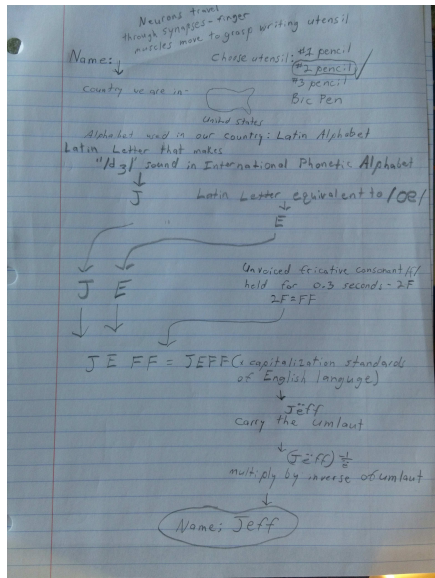 Neurons travel
through synapses - finger
muscles move to grasp writing utensil
Name:
Choose utensil: #1 pencil
#2 pencil
#3 pencil
Bic Pen
Country we are in -
United States
Alphabet used in our country: Latin Alphabet
Latin Letter that makes
"/dʒ/" sound in International Phonetic Alphabet
J
Latin Letter equivalent to /oe/
E
J E
Unvoiced fricative consonant
hold for 0.3 seconds - 2F
2F = FF
J E FF = JEFF (x capitalization standards
of English languge)
Jëff
Carry the umlaut
multiply by inverse of umlaut
Name; Jeff